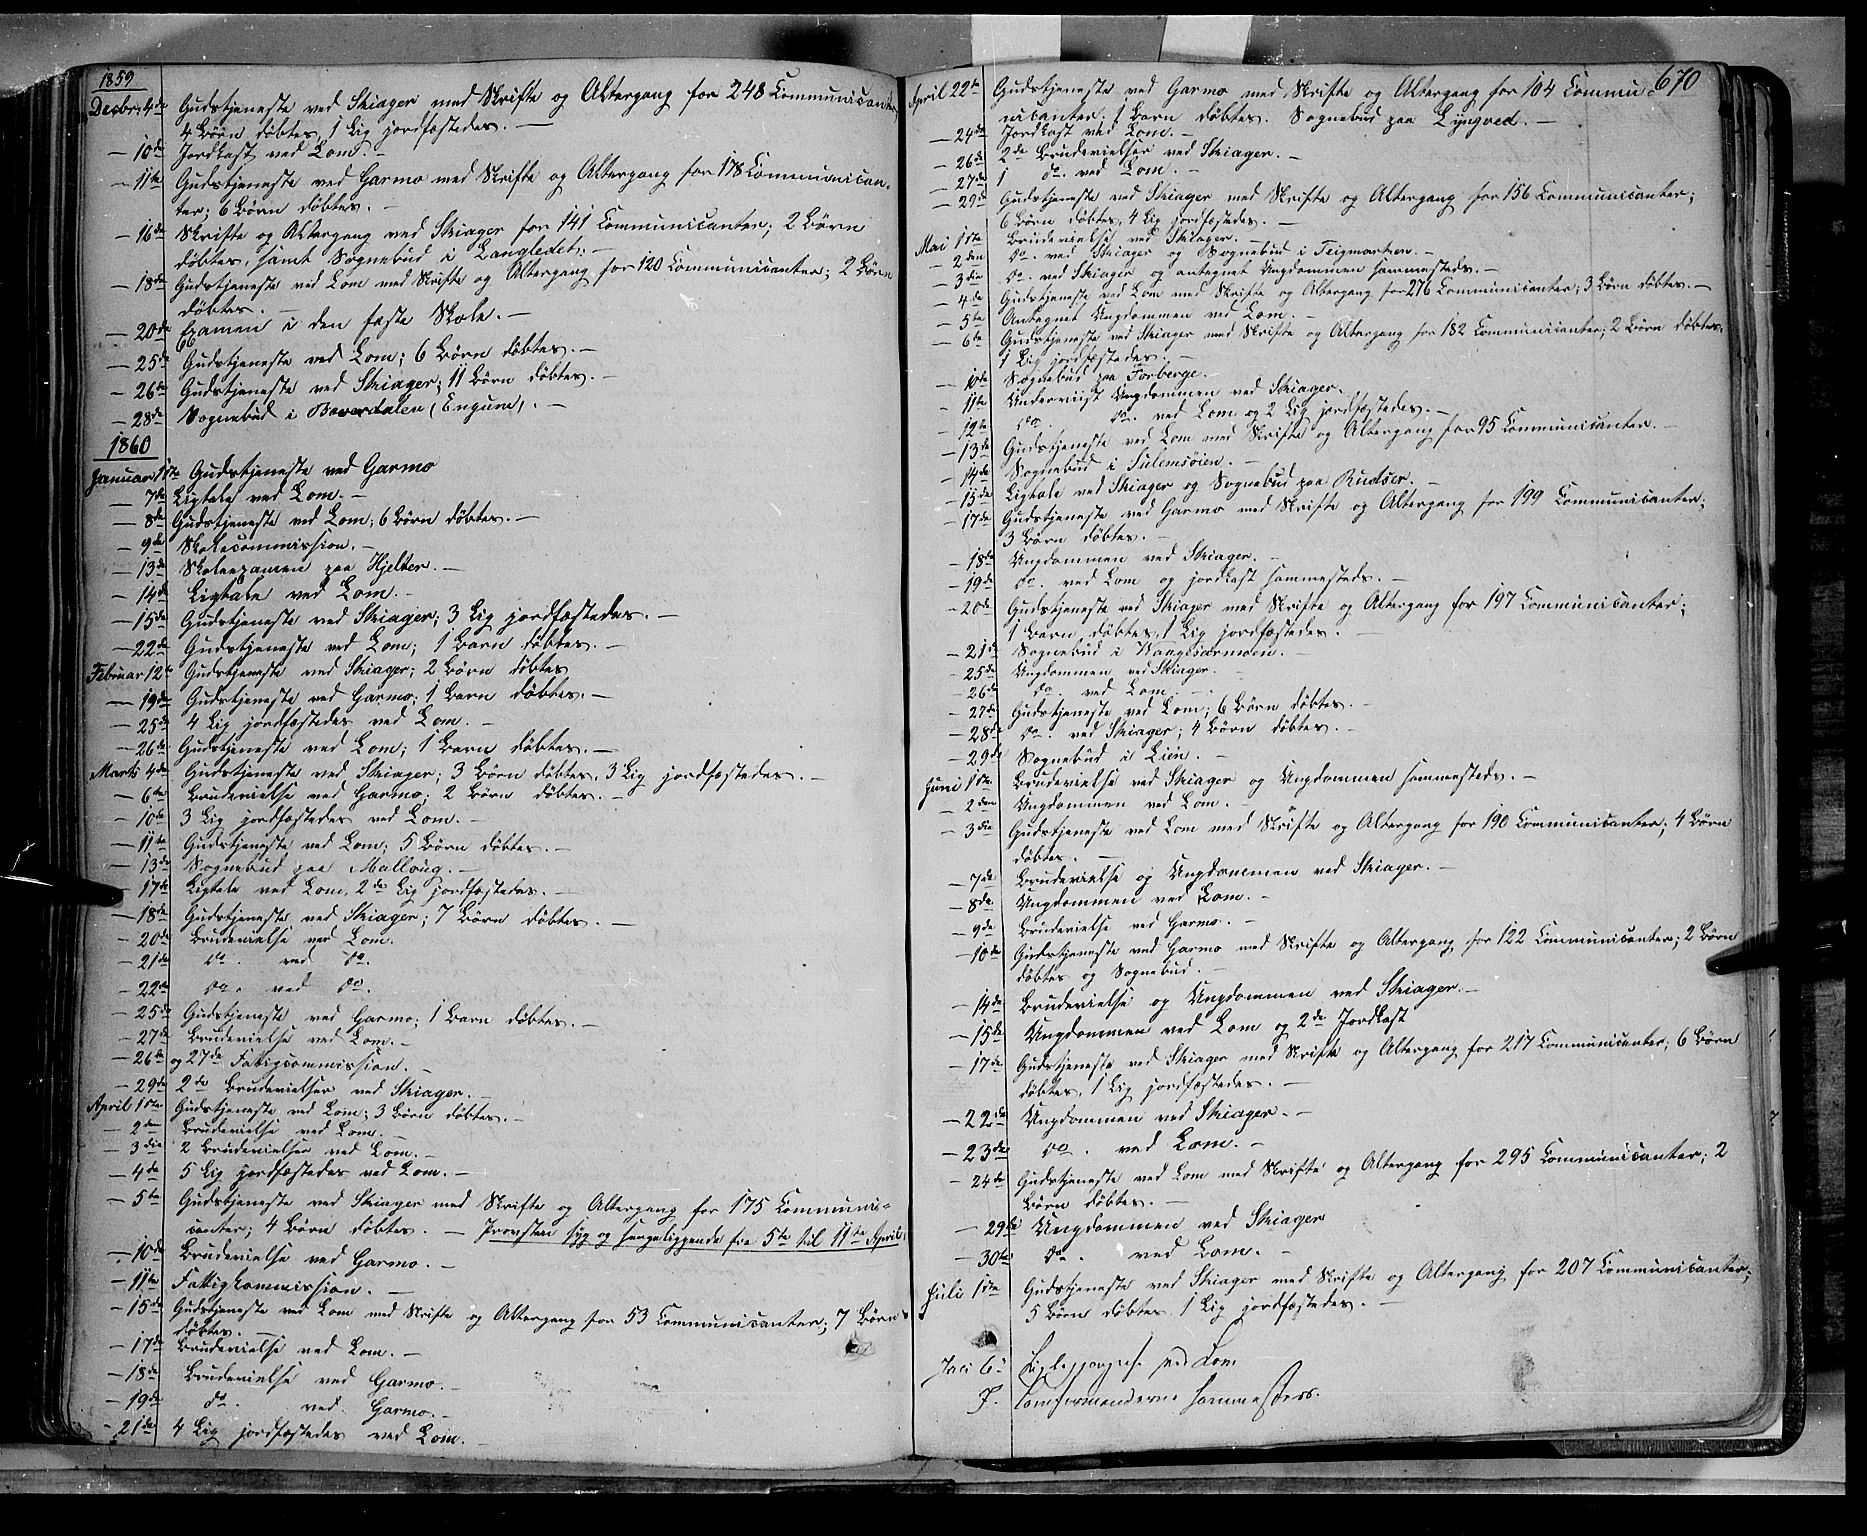 1859
Decbr: 4de Gudstjeneste ved Skiager med Skrifte og Altergang for 248 Communicanter,
4 Børn døbtes, 1 Lig jordfæstedes. —
— 10de Jordkast ved Lom. —
— 11te Gudstjeneste ved Garmo med Skrifte og Altergang for 178 Communican-
ter; 6 Børn døbtes. —
— 16de Skrifte og Altergang ved Skiager for 141 Communicanter; 2 Børn
døbtes, samt Sognebud i Langledet. —
— 18de Gudstjeneste ved Lom med Skrifte og Altergang for 120 Communicanter; 2 Børn
døbtes. —
— 20de Examen i den faste Skole. —
— 25de Gudstjeneste ved Lom; 6 Børn døbtes. —
— 26de Gudstjeneste ved Skiager; 11 Børn døbtes. —
— 28de Sognebud i Bæverdalen (Engum). —
1860
Januar 1ste Gudstjeneste ved Garmo
— 7de Ligtale ved Lom. —
— 8de Gudstjeneste ved Lom; 6 Børn døbtes. —
— 9de Skolecommission. —
— 13de Skoleexamen paa Hjelter. —
— 14de Ligtale ved Lom. —
— 15de Gudstjeneste ved Skiager; 3 Lig jordfæstedes. —
— 22de Gudstjeneste ved Lom; 1 Barn døbtes. —
Februar 12te Gudstjeneste ved Skiager; 2 Børn døbtes
— 19de Gudstjeneste ved Garmo; 1 Barn døbtes. —
— 25de 4 Lig jordfæstedes ved Lom. —
— 26de Gudstjeneste ved Lom; 1 Barn døbtes. —
Marts 4de Gudstjeneste ved Skiager; 3 Børn døbtes, 3 Lig jordfæstedes. —
— 6te Brudevielse ved Garmo; 2 Børn døbtes. —
— 10de 3 Lig jordfæstedes ved Lom. —
— 11te Gudstjeneste ved Lom; 5 Børn døbtes. —
— 13de Sognebud paa Malloug. —
— 17de Ligtale ved Lom, 2de Lig jordfæstedes. —
— 18de Gudstjeneste ved Skiager; 7 Børn døbtes. —
— 20de Brudevielse ved Lom.
— 21de do. ved do.
— 22de do. ved do.
— 25de Gudstjeneste ved Garmo; 1 Barn døbtes. —
— 27de Brudevielse ved Lom. —
— 26de og 27de Fattigcommission. —
— 29de 2de Brudevielser ved Skiager. —
April 1ste Gudstjeneste ved Lom; 3 Børn døbtes. —
— 2den Brudevielse ved Lom. —
— 3die 2 Brudevielser ved Lom. —
— 4de 5 Lig jordfæstedes ved Lom. —
— 5te Gudstjeneste ved Skiager med Skrifte og Altergang for 175 Communi-
canter; 4 Børn døbtes. — Provsten syg og sengeliggende fra 5te til 11te April.
— 10de Brudevielse ved Garmo. —
— 11te Fattigkommission. —
— 15de Gudstjeneste ved Lom med Skrifte og Altergang for 53 Communicanter; 7 Børn
døbtes. —
— 17de Brudevielse ved Lom. —
— 18de Brudevielse ved Garmo. —
— 19de do. ved Garmo. —
— 21de 4 Lig jordfæstedes ved Lom. —
670
April 22de Gudstjeneste ved Garmo med Skrifte og Altergang for 104 Commu-
nicanter; 1 Barn døbtes. Sognebud paa Lyngved. —
— 24de Jordkast ved Lom. —
— 26de 2de Brudevielser ved Skiager. —
— 27de 1 do. ved Lom. —
— 29de Gudstjeneste ved Skiager med Skrifte og Altergang for 156 Communicanter;
6 Børn døbtes, 4 Lig jordfæstedes. —
Mai 1ste Brudevielse ved Skiager. —
— 2den do. ved Skiager og Sognebud i Teigmarken. —
— 3die do. ved Skiager og antegnet Ungdommen sammesteds. —
— 4de Gudstjeneste ved Lom med Skrifte og Altergang for 276 Communicanter; 3 Børn døbtes. —
— 5te Antegnet Ungdommen ved Lom. —
— 6te Gudstjeneste ved Skiager med Skrifte og Altergang for 182 Communicanter; 2 Børn døbtes,
1 Lig jordfæstedes. —
— 10de Sognebud paa Forberge. —
— 11te Underviist Ungdommen ved Skiager.
— 12te do. do. ved Lom og 2 Lig jordfæstedes. —
— 13de Gudstjeneste ved Lom med Skrifte og Altergang for 95 Communicanter. —
— 14de Sognebud i Sulemsøien. —
— 15de Ligtale ved Skiager og Sognebud paa Rudser. —
— 17de Gudstjeneste ved Garmo med Skrifte og Altergang for 199 Communicanter;
3 Børn døbtes. —
— 18de Ungdommen ved Skiager. —
— 19de do. ved Lom og jordkast sammesteds. —
— 20de Gudstjeneste ved Skiager med Skrifte og Altergang for 197 Communicanter;
1 Barn døbtes, 1 Lig jordfæstedes. —
— 21de Sognebud i
— 25de Ungdommen ved Skiager. —
— 26de do. ved Lom. —
— 27de Gudstjeneste ved Lom; 6 Børn døbtes. —
— 28de do. ved Skiager; 4 Børn døbtes. —
— 29de Sognebud i Lien. —
Juni 1ste Brudevielse ved Skiager og Ungdommen sammesteds. —
— 2den Ungdommen ved Lom. —
— 3die Gudstjeneste ved Lom med Skrifte og Altergang for 190 Communicanter; 4 Børn
døbtes. —
— 7de Brudevielse og Ungdommen ved Skiager. —
— 8de Ungdommen ved Lom. —
— 9de Brudevielse ved Garmo. —
— 10de Gudstjeneste ved Garmo med Skrifte og Altergang for 122 Communicanter; 2 Børn
døbtes og Sognebud. —
— 14de Brudevielse og Ungdommen ved Skiager. —
— 15de Ungdommen ved Lom og 2de Jordkast
— 17de Gudstjeneste ved Skiager med Skrifte og Altergang for 217 Communicanter; 6 Børn
døbtes, 1 Lig jordfæstedes. —
— 22de Ungdommen ved Skiager. —
— 23de do. ved Lom. —
— 24de Gudstjeneste ved Lom med Skrifte og Altergang for 295 Communicanter; 2
Børn døbtes. —
— 29de Ungdommen ved Skiager
— 30te do. ved Lom. —
Juli 1ste Gudstjeneste ved Skiager med Skrifte og Altergang for 207 Communicanter;
5 Børn døbtes, 1 Lig jordfæstedes. —
Juli 6. ved Lom
7. Confirmanderne sammesteds.